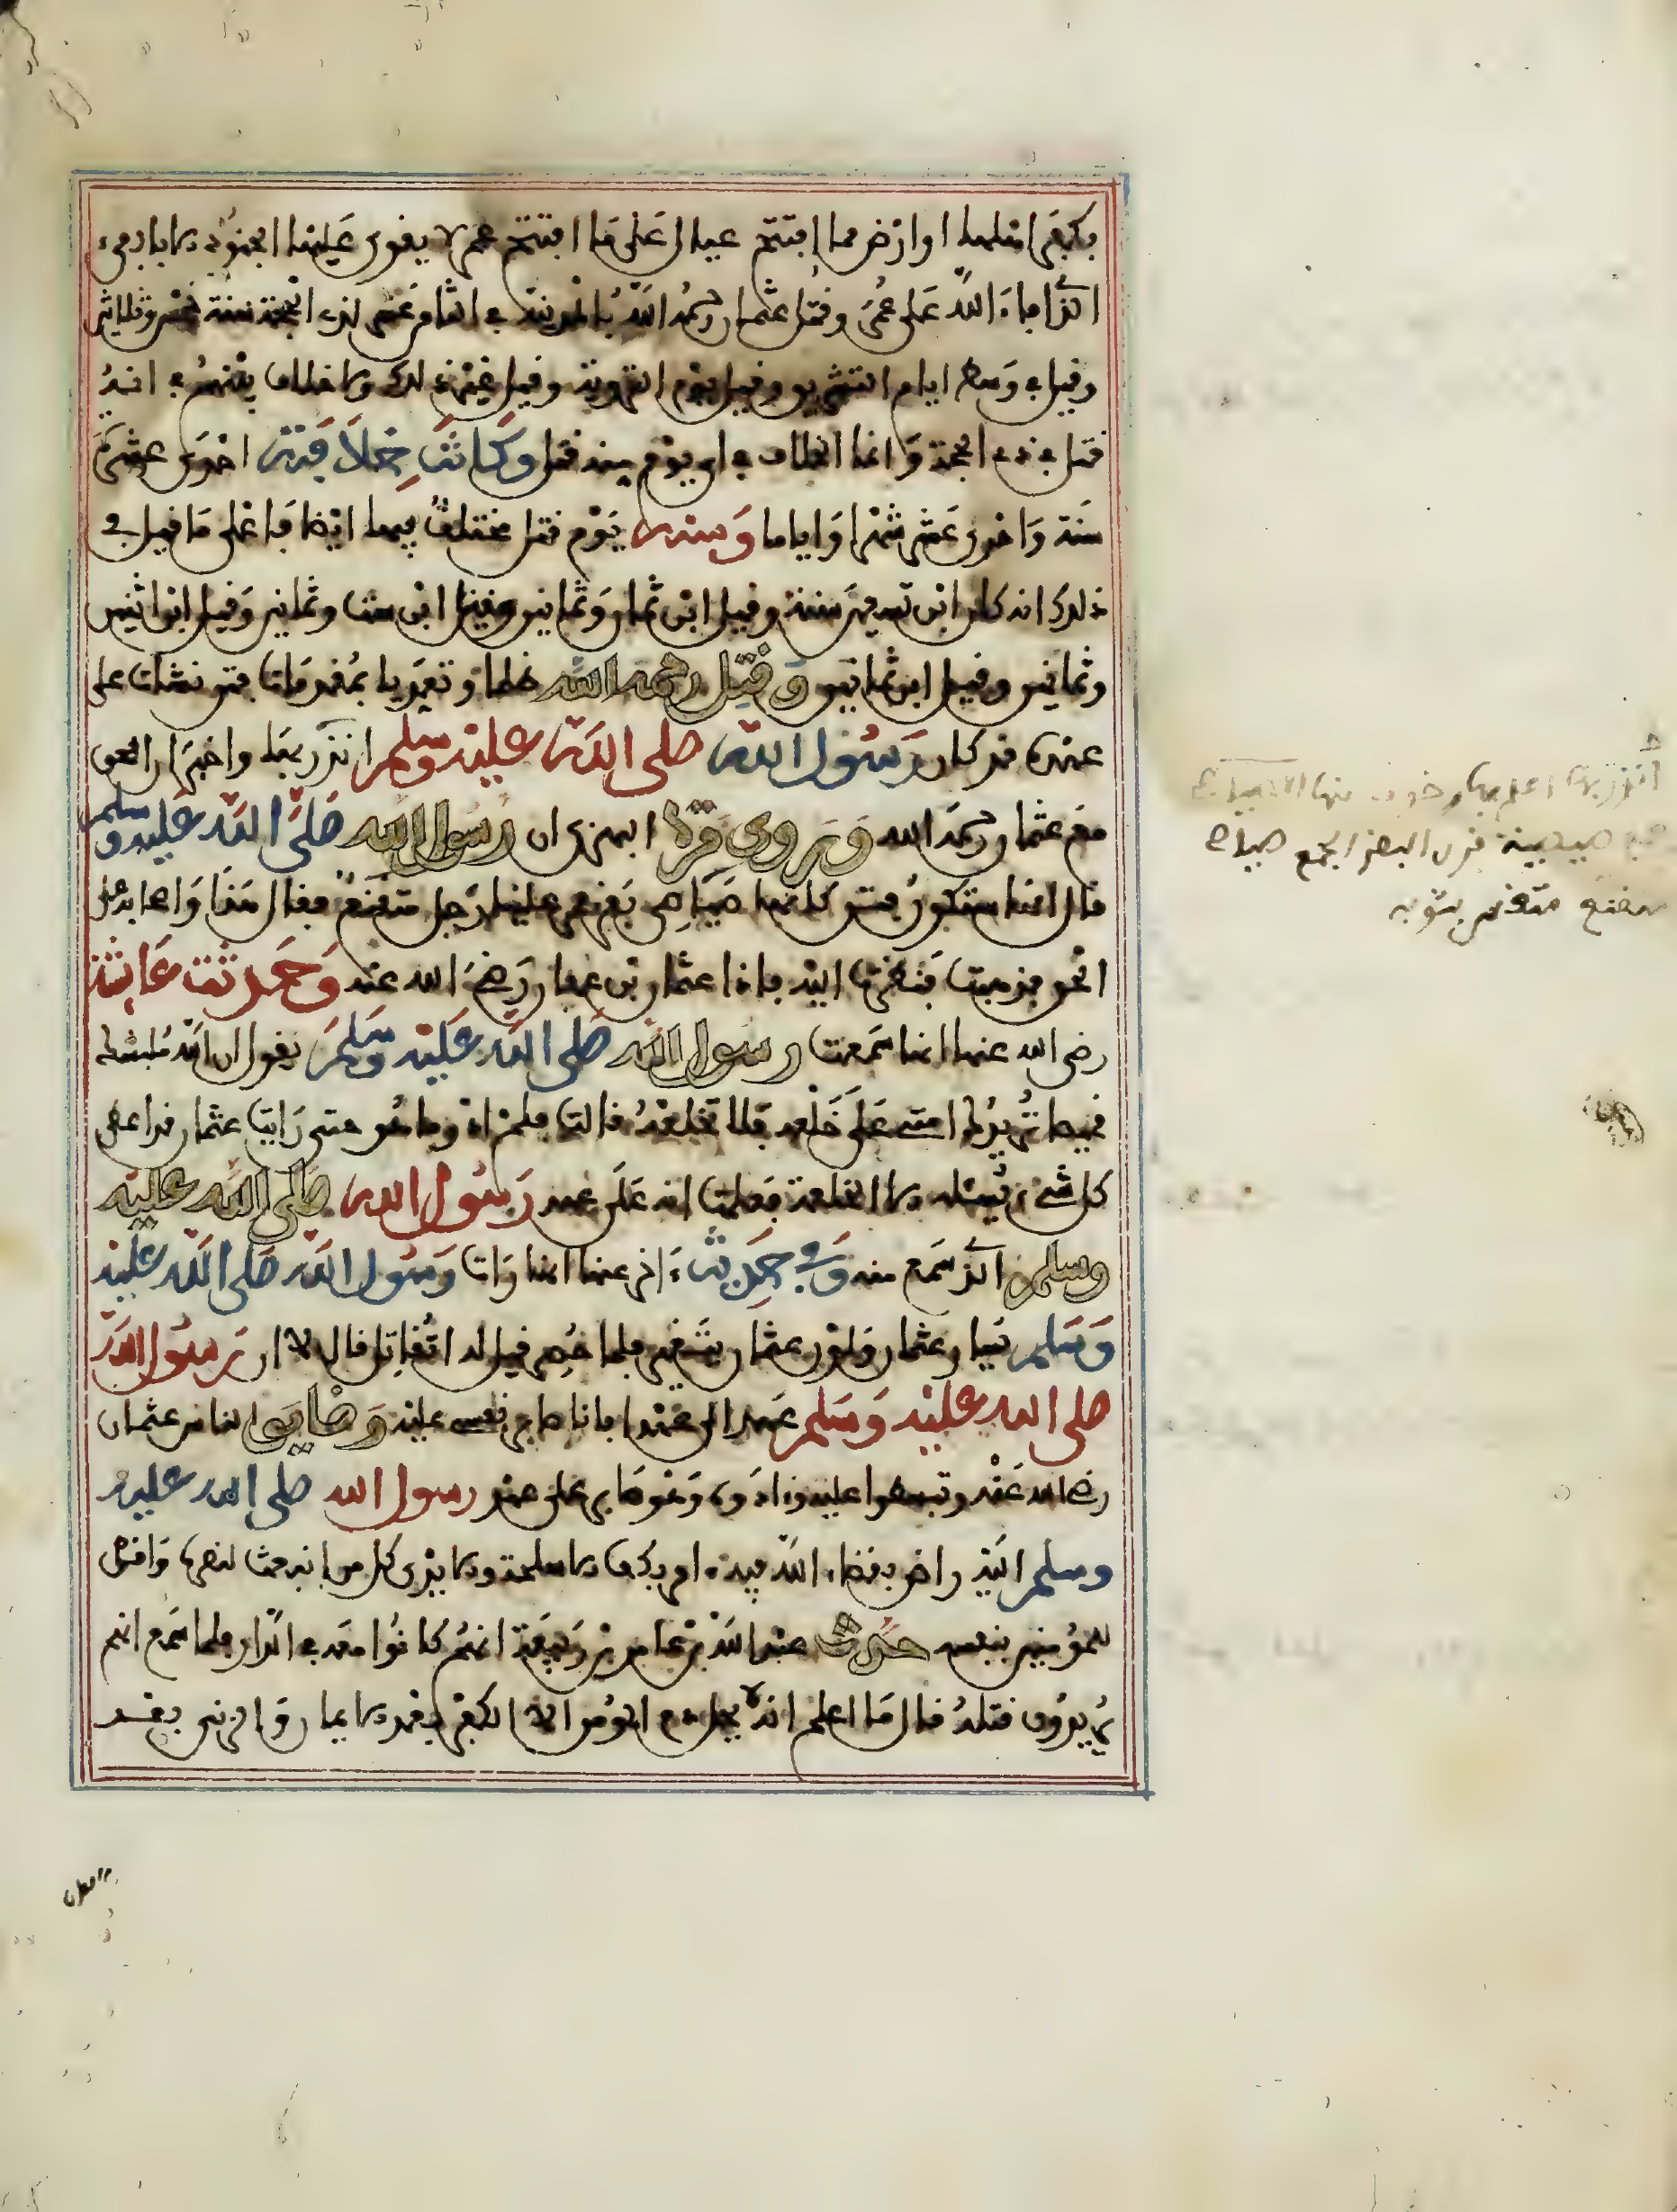 اوارض مما افتتح عمال على ما افتتح عمر لا يقوى عليها الجنود
افاء الله على عمر وقتل عثمان رحمه الله بالمدينة في الثامن عشر لذي الحجة سنة خمس وثلاثين
وقيل في وسط ايام التشريق وقيل يوم التروية وقيل غير ذلك ولا خلاف بينهم في انه
قتل في ذي الحجة وانما الخلاف في اي يوم منه قتل وكانت خلافته احدى عشرة
سنة واحدى عشر شهرا واياما وسنه يوم قتل مختلف فيها ايضا فاعلى ما قيل في
ذلك انه كان ابن تسعين سنة وقيل ابن ثمان وثمانين وقيل ابن ست وثمانين وقيل ابن اثنين
وثمانين وقيل ابن ثمانين وقتل رحمه الله ظلما وتعديا بمقدمات فتن نشات على
عهده قد كان رسول الله صلى الله عليه وسلم انذر بها واخبر ان الحق
مع عثمان رحمه الله وروى مرة البهزي ان رسول الله صلى الله عليه وسلم
قال انها ستكون فتن كانها صياصي بقر فمر علينا رجل متقنع فقال هذا واصحابه على
الحق فذهبت فنظرت اليه فاذا عثمان بن عفان رضي الله عنه وحدثت عائشة
رضي الله عنها انها سمعت رسول الله صلى الله عليه وسلم يقول ان الله ملبسك
قميصا تريدك امتي على خلعه فلا تخلعه قالت فلم ادر ما هو حتى رايت عثمان قد اعطى
كل شيء يسئله الا الخلعة فعلمت انه على عهد رسول الله صلى الله عليه
وسلم الذي سمع منه وفي حديث ءاخر عنها انها رات رسول الله صلى الله عليه
وسلم يسار عثمان ولون عثمان يتغير فلما حصر قيل له اتقاتل قال لا ان رسول الله
صلى الله عليه وسلم عهد الي عهدا فانا صابر نفسي عليه وضايق الناس عثمان
رضي الله عنه وتبسطوا عليه وءاذوه وهو صابر على عهد رسول الله صلى الله عليه
وسلم اليه راض بقضاء الله فيه امر بكف الاسلحة ولا يرى كل من انبعث لنصره وافتدى
للمؤمنين بنفسه حدث عبد الله بن عامر بن ربيعة انهم كانوا معه في الدار فلما سمع انهم
يريدون قتله قال ما اعلم انه يحل دم المؤمن الا الكفر بعد الايمان والزنى بعد